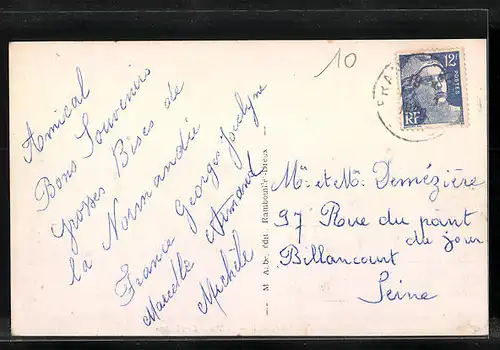 10
12F
POSTES
RF
Amical
Bons Souvenirs
Grosses Bises de
la Normandie
France Georges Jocelyne
Marcelle Armand
Michèle
M. Aubé, édit. Rambouille
Mr et Me Demézière
97 Rue du pont
du jour
Billancourt
Seine